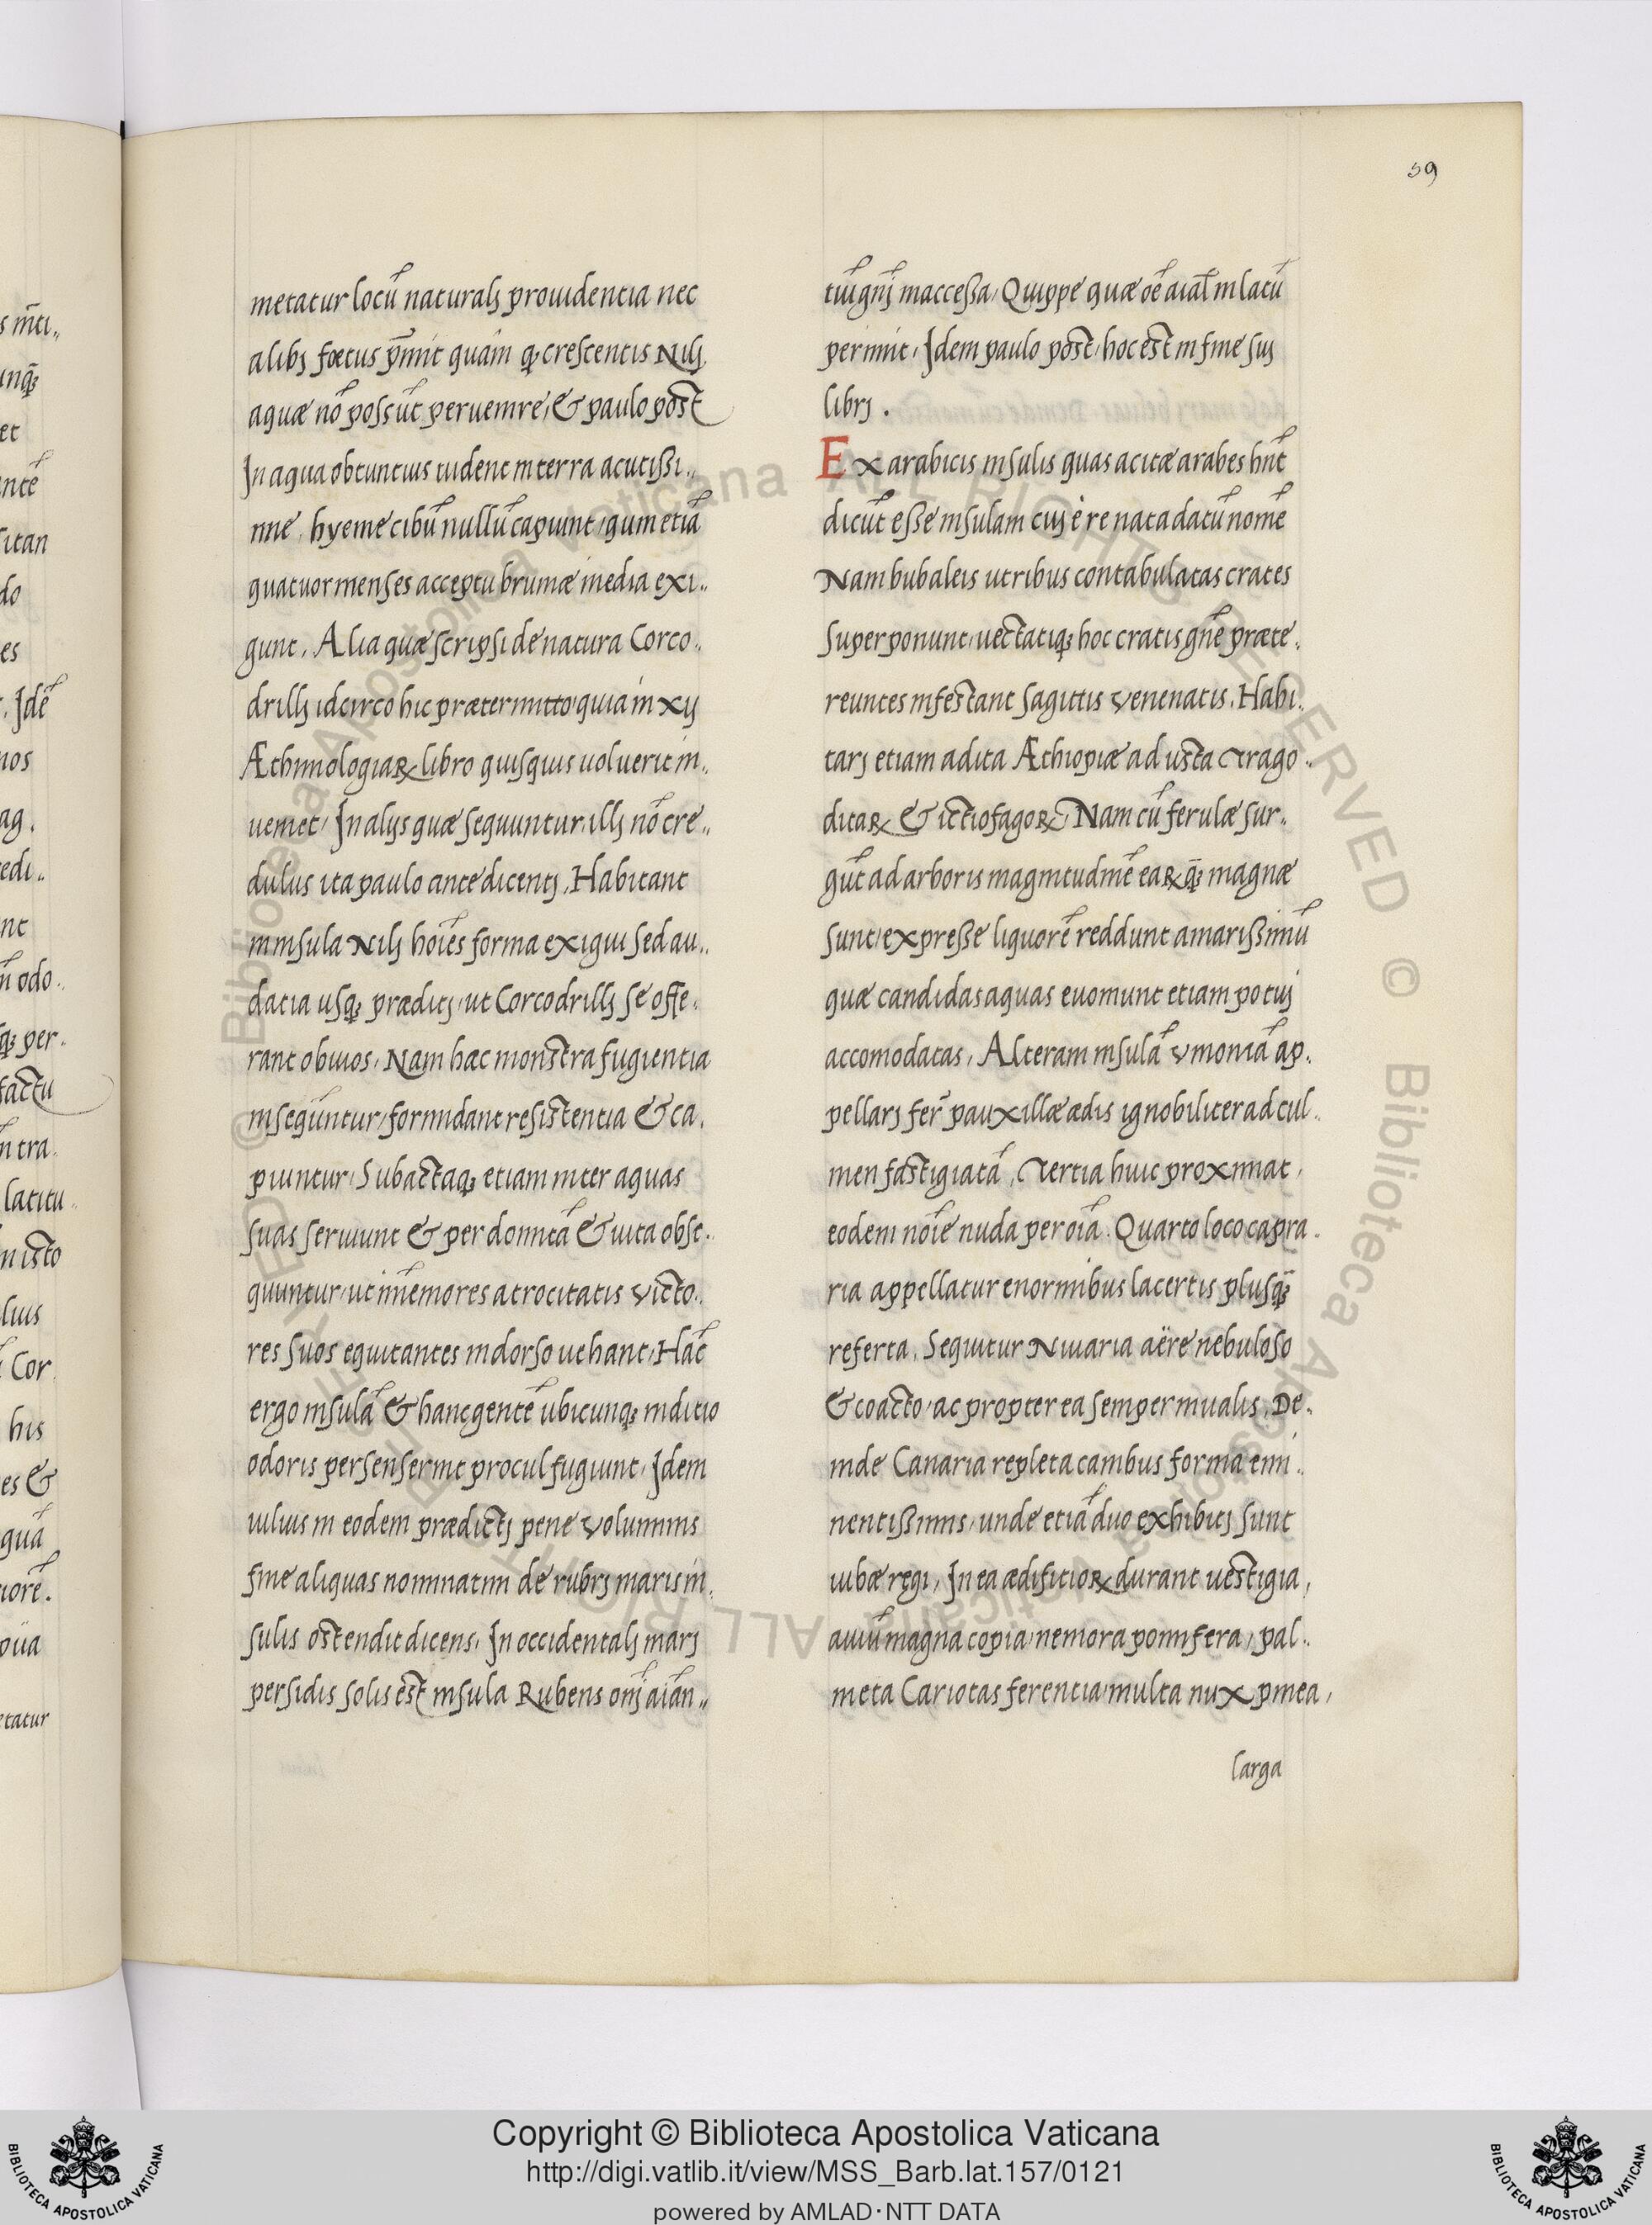 59
metatur locū naturalj prouidentia nec
alibj fœtus p̄mit quam q; crescentis Nilj
aquæ nō possūt peruenire, & paulo post
In aqua obtuntius uident in terra acutissi..
me. hyeme cibū nullū capiunt, qum etiā
quatuor menses acceptu brumæ inedia exi..
gunt. Alia quæ scripsi de natura Corco.
drillj idcirco hic prætermitto, quia in xij
Æthimologiaꝝ libro quisquis uoluerit in..
ueniet. In alijs quæ sequuntur, illj nō cre..
dulus ita paulo ante dicentj. Habitant
in insula Nilj hoīes forma exigui sed au..
datia usq; præditj, ut Corcodrillj se offe.
rant obuios. Nam hæc monstra fugientia
insequntur, formidant resistentia & ca.
piuntur. Subactaq; etiam inter aquas
suas seruiunt & perdomitā & uita obse.
quuntur, ut inmemores atrocitatis victo..
res suos equitantes in dorso uehant. Hāc
ergo insulā & hanc gentē ubicunq; inditio
odoris persenserint procul fugiunt. Idem
iulius in eodem prædictj pene voluminis
fine aliquas nominatim de rubrj maris in.
sulis ostendit dicens. In occidentalj marj
persidis solis est insula Rubens onj aiān..
tiūi gn̄j inaccessa. Quippe quæ oē aiāl in latū
perimit. Idem paulo post, hoc est in fine suj
librj.
Ex arabicis insulis quas acitæ arabes hn̄t
dicūt esse insulam cuj è re nata datū nomē
Nam bubaleis utribus contabulatas crates
superponunt, uectatiq; hoc cratis gn̄e præte.
reuntes infestant sagittis venenatis. Habi..
tarj etiam adita Æthiopiæ adusta Trago.
ditaꝝ & ictiofagoꝝ. Nam cū ferulæ sur..
gūt ad arboris magnitudinē eaꝝ q; magnæ
sunt, expresse liquorē reddunt amarissimū
quæ candidas aquas euomunt etiam potuj
accomodatas. Alteram insulā vmoniā ap.
pellarj fer̄ pauxillæ ædis ignobiliter ad cul..
men fastigiatā. Tertia huic proximat,
eodem noīe nuda per oīa. Quarto loco capra.
ria appellatur enormibus lacertis plusq;
referta. Sequitur Niuaria aëre nebuloso
& coacto, ac propter ea semper niualis. De.
inde Canaria repleta canibus forma emi..
nentissimis, unde etiā duo exhibitj sunt
iubæ regi. In ea ædifitioꝝ durant uestigia,
auiū magna copia, nemora pomifera, pal..
meta Cariotas ferentia, multa nux pinea,
larga
Copyright © Biblioteca Apostolica Vaticana
http://digi.vatlib.it/view/MSS_Barb.lat.157/0121
powered by AMLAD·NTT DATA